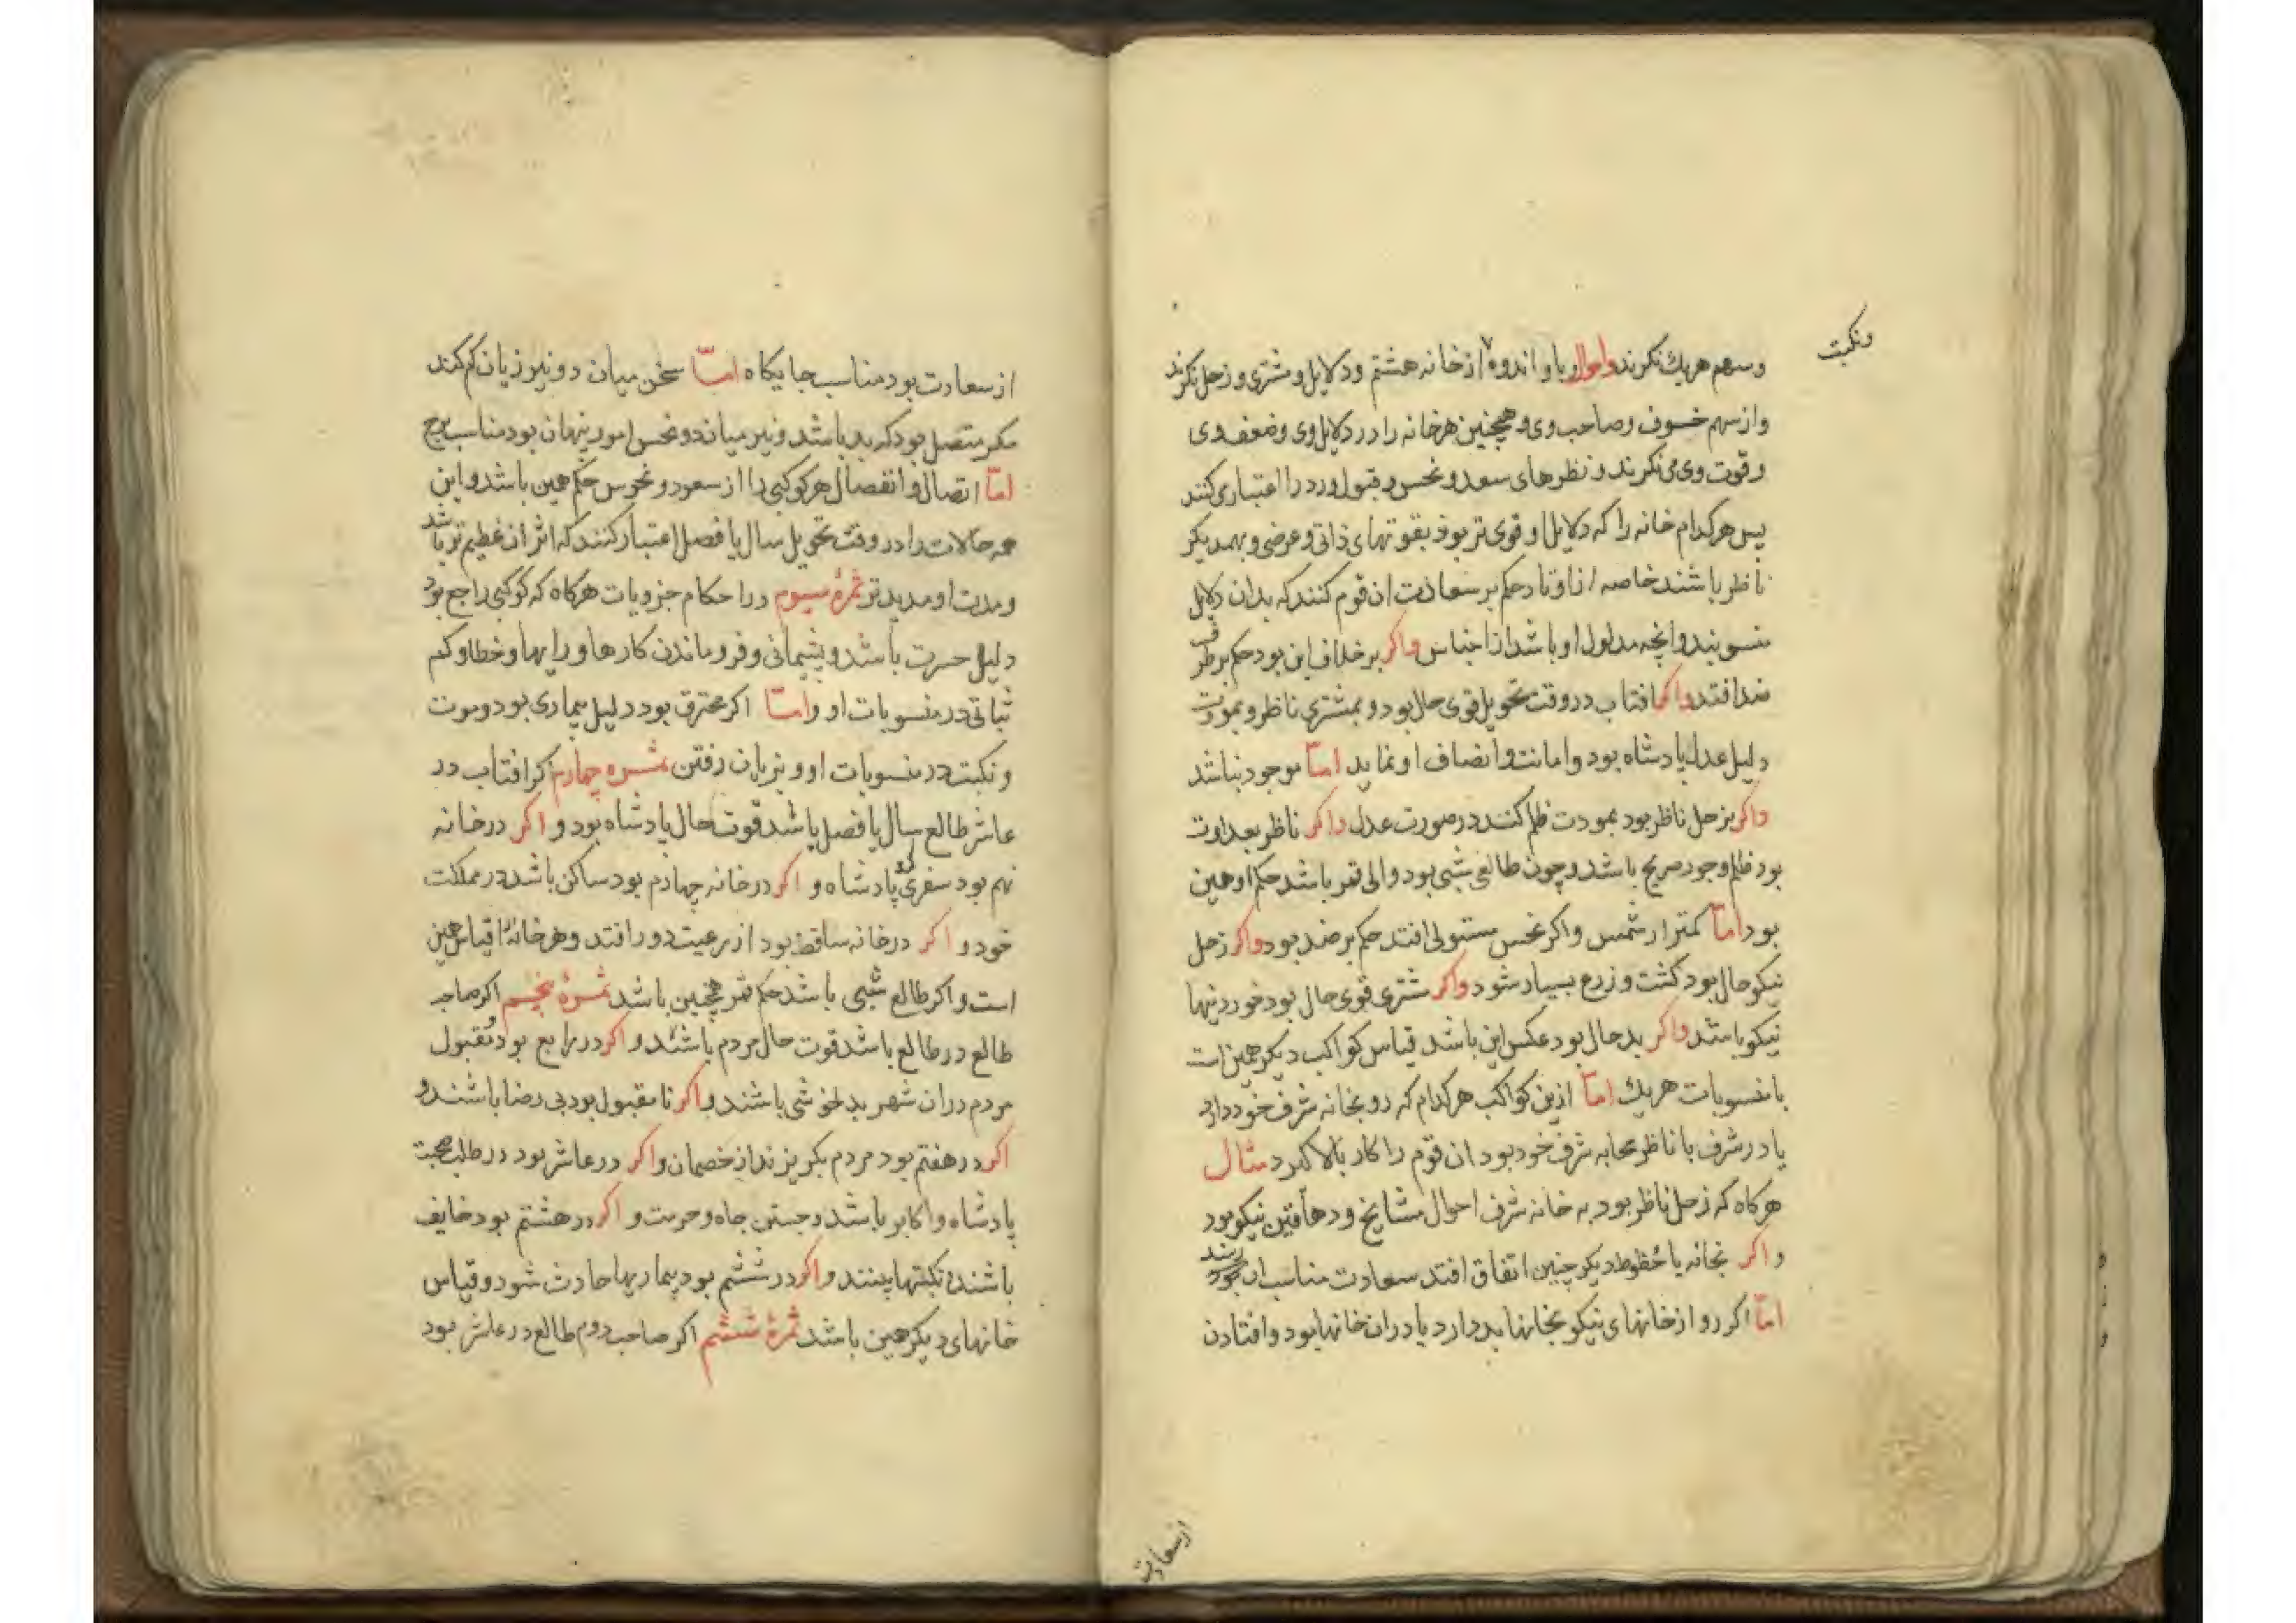 ونکبت
وسهم هریك نکرند واحوال وبا و اندوه از خانه هشتم ودلایل ومشتری و زحل نکرند
واز سهم خسوف وصاحب وی وهمچنین هر خانه را در دلایل وی وضعف وی
وقوت وی می نکرند و نظرهای سعد و نحس و قبول ورد را اعتبار می کنند
پس هرکدام خانه را که دلایل او قوی تر بود بقوتهای ذاتی و عرضی و بهمدیکر
ناظر باشند خاصه از اوتاد حکم بر سعادت ان قوم کنند که بدان دلایل
منسوبند وانچه مدلول او باشد از اجناس واکر برخلاف این بود حکم بر طرف
ضد افتد واکر افتاب در وقت تحویل قوی حال بود و بمشتری ناظر و بمودت
دلیل عدل پادشاه بود وامانت وانصاف او نماید اما موجود نباشد
واکر بزحل ناظر بود بمودت ظلم کنند در صورت عدل واکر ناظر بعداوت
بود ظلم وجور صریح باشد و چون طالع شبی بود والی قمر باشد حکم او همین
بود اما کمتر از شمس واکر نحس مستولی افتد حکم بر ضد بود واکر زحل
نیکو حال بود کشت و زرع بسیار شود واکر مشتری قوی حال بود خوردنیها
نیکو باشد واکر بد حال بود عکس این باشد قیاس کواکب دیکر همین است
با منسوبات هریك اما ازین کواکب هرکدام که رو بخانه شرف خود دارد
یا در شرف یا ناظر بخانه شرف خود بود ان قوم را کار بالا کیرد مثال
هرکاه که زحل ناظر بود به خانه شرف احوال مشایخ و دهاقین نیکو بود
و اکر بخانه یا حظوظ دیکر چنین اتفاق افتد سعادت مناسب ان بود رسند
اما اکر رو از خانهای نیکو بخانها بد دارد یا دران خانها بود وافتادن
از سعادت
از سعادت بود مناسب جایکاه اما سخن میان دو نیر زیان کم کند
مکر متصل بود که بد باشد ونیر میان دو نحس امور پنهان بود مناسب برج
اما اتصال و انفصال هر کوکبی را از سعود و نحوس حکم همین باشد و این
همه حالات را در وقت تحویل سال یا فصل اعتبار کنند که اثر ان عظیم تر باشد
ومدت او مدیدتر ثمرهٔ سیوم در احکام جزویات هرکاه که کوکبی راجع بود
دلیل حسرت باشد و پشیمانی و فروماندن کارها و رایها وخطا و کم
ثباتی در منسوبات او واما اکر محترق بود دلیل بیماری بود وموت
و نکبت در منسوبات او و بزیان رفتن ثمره چهارم اکر افتاب در
عاشر طالع سال یا فصل باشد قوت حال پادشاه بود و اکر در خانه
نهم بود سفری کند پادشاه و اکر در خانه چهارم بود ساکن باشد در مملکت
خود و اکر در خانه ساقط بود از رعیت دور افتد وهر خانه را قیاس همین
است واکر طالع شبی باشد حکم قمر همچنین باشد ثمرهٔ پنجم اکر صاحب
طالع در طالع باشد قوت حال مردم باشد و اکر در رابع بود و مقبول
مردم دران شهر بدلخوشی باشند و اکر نامقبول بود بی رضا باشند و
اکر در هفتم بود مردم بکریزند از خصمان و اکر در عاشر بود در طلب صحبت
پادشاه واکابر باشد وجستن جاه وحرمت و اکر در هشتم بود خایف
باشند و نکبتها بینند و اکر در ششم بود بیماریها حادث شود و قیاس
خانهای دیکر همین باشد ثمرهٔ ششم اکر صاحب دوم طالع در عاشر بود